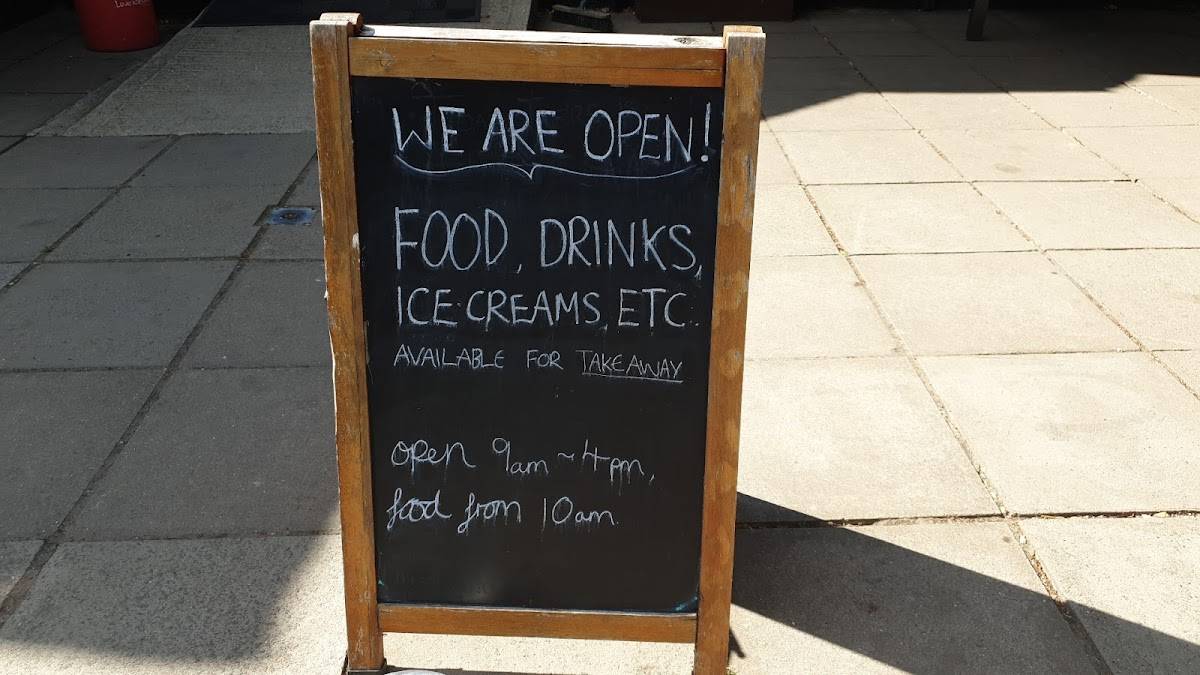 WE ARE OPEN!
FOOD, DRINKS,
ICE CREAMS, ETC.
AVAILABLE FOR TAKEAWAY
open 9am ~ 4pm,
food from 10am.